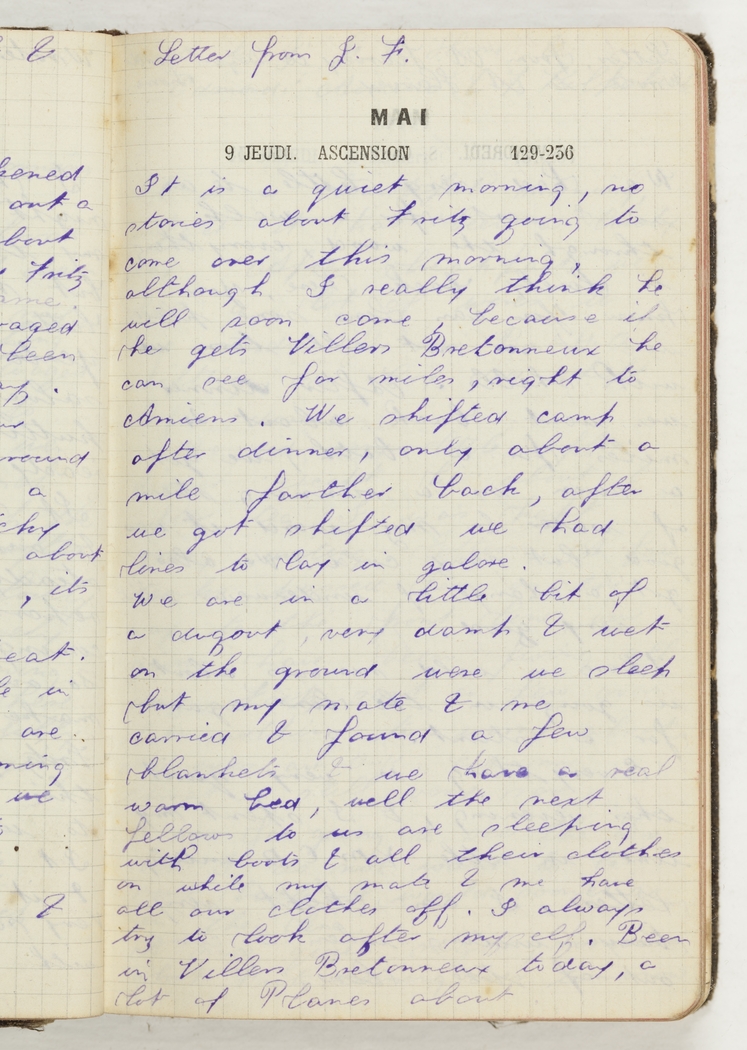 Letter from J. F.
MAI
9 JEUDI. ASCENSION 129-236
It is a quiet morning, no
stories about Fritz going to
come over this morning,
although I really think he
will soon come, because if
he gets Villers Bretonneux he
can see for miles, right to
Amiens. We shifted camp
after dinner, only about a
mile farther back, after
we got shifted we had
lines to lay in galore.
We are in a little bit of
a dugout, very damp & wet
on the ground were we sleep
but my mate & me
carried & found a few
blankets & we have a real
warm bed, well the next
fellows to us are sleeping
with boots & all their clothes
on while my mate & me have
all our clothes off. I always
try to look after myself. Been
in Villers Bretonneux today, a
lot of Planes about
&
out a
about
Fritz
been
round
a
about
, its
in
are
we
&